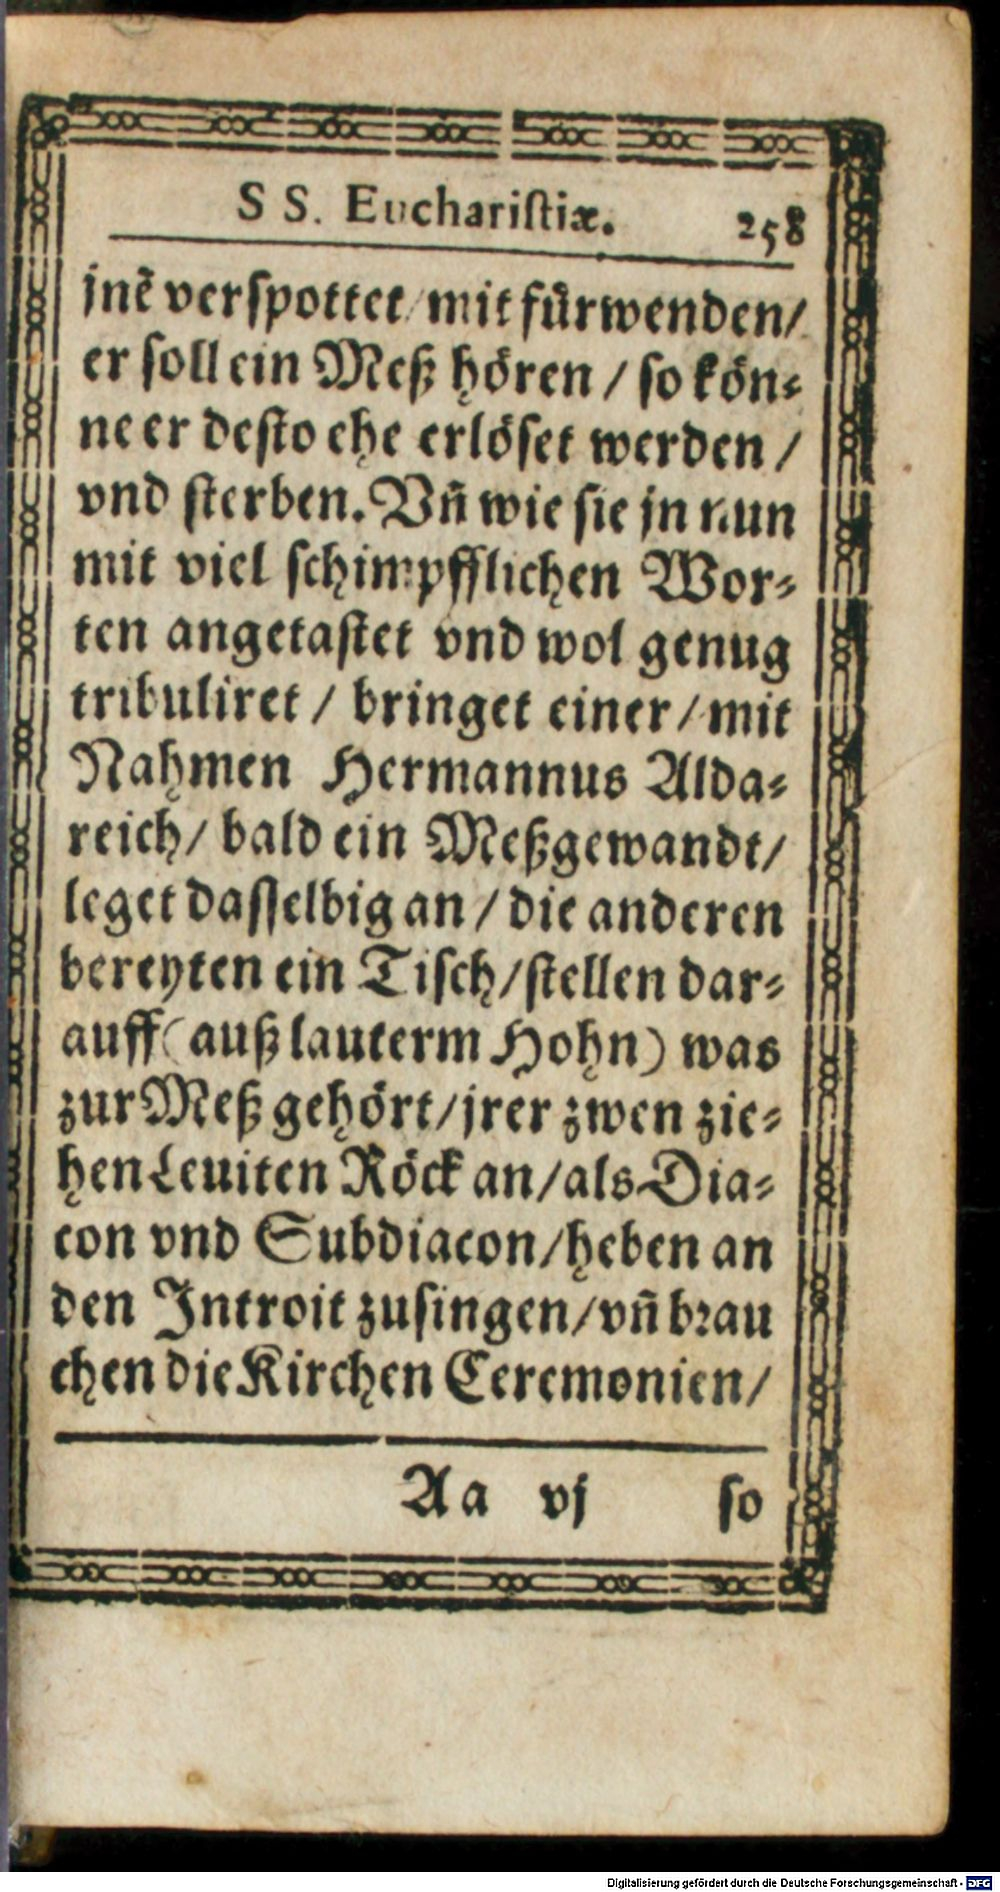 SS. Euchariſtiæ. 258
jnẽ verſpottet/ mit fürwenden/
er ſoll ein Meß hören / ſo kön⸗
ne er deſto ehe erlöſet werden /
vnd ſterben. Vñ wie ſie jn nun
mit viel ſchimpfflichen Wor⸗
ten angetaſtet vnd wol genug
tribuliret / bringet einer / mit
Nahmen Hermannus Alda⸗
reich / bald ein Meßgewandt/
leget daſſelbig an / die anderen
bereyten ein Tiſch / ſtellen dar⸗
auff (auß lauterm Hohn) was
zur Meß gehört / jrer zwen zie⸗
hen Leuiten Röck an / als Dia⸗
con vnd Subdiacon / heben an
den Introit zuſingen / vñ brau
chen die Kirchen Ceremonien /
Aa vj ſo
Digitalisierung gefördert durch die Deutsche Forschungsgemeinschaft - DFG